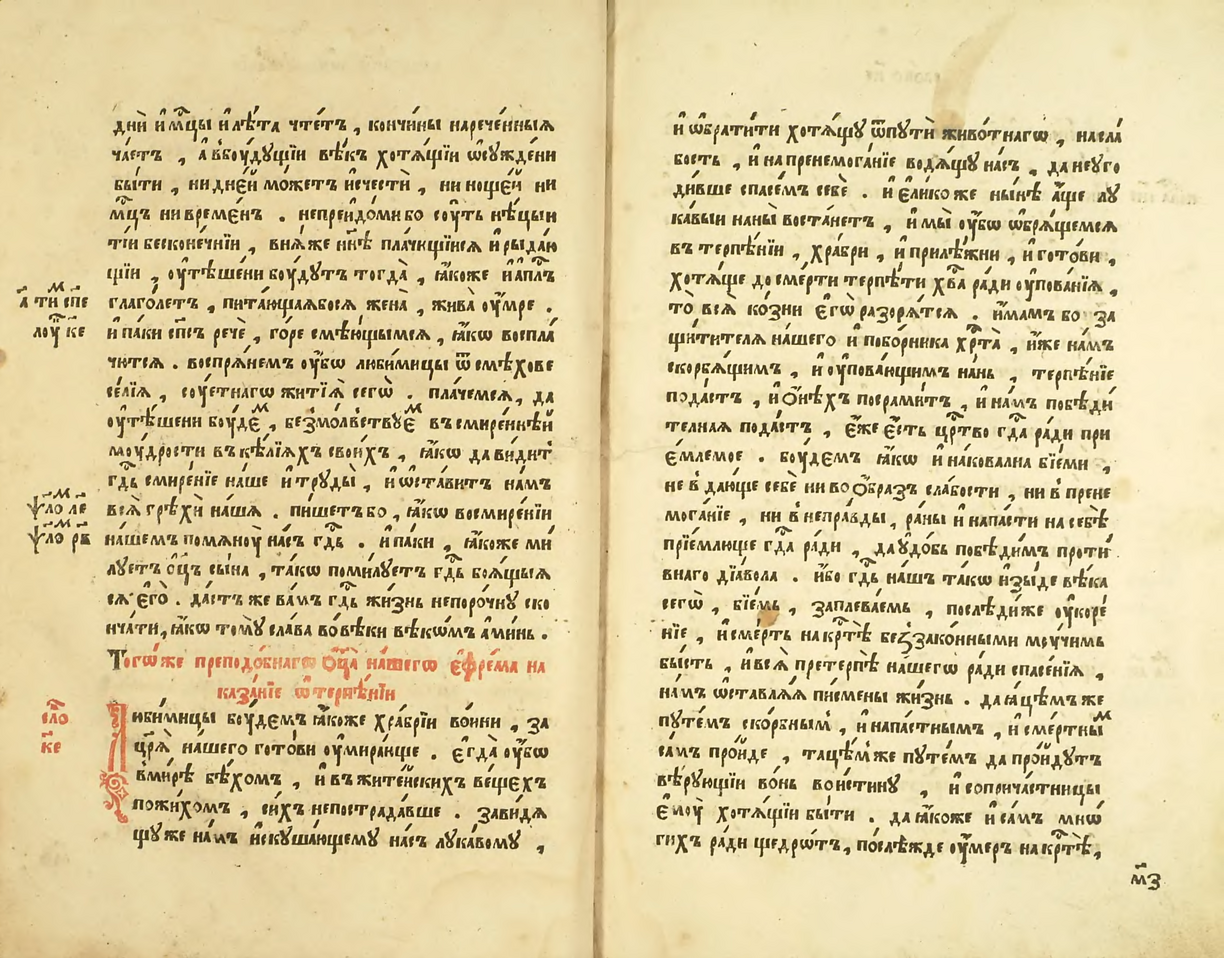 дни̑ и҆мц҃ы и҆лѣ́та чте́тъ , кончи́ны нарече́нныꙗ
ча́етъ , а҆вбоу́дꙋщїи вѣ́къ хотѧ́щїи ѡ҆сꙋжде́ни
бы́ти , нидне́й мо́жетъ и҆счести̑ , нинощей ни
мц҃ъ нивреме́нъ . непреидо́мибо соу́ть мѣ́цыи
ті́и бесконе́чнїи , внѧ́же нн҃ѣ пла́чищїисѧ и҆рыда́ю
щїи , оу҆тѣ́шени боу́дꙋтъ тогда̀ , ꙗ҆́коже и҆ап҃лъ
глаго́летъ , пита́ющаѧбосѧ жена̀ , жива̀ оу҆́мре .
а҃ ти сп҃е
и҆па́ки сп҃съ рече̑ , го́ре смѣю́щымсѧ , ꙗ҆́кѡ воспла́
лоу҃ ке
чютсѧ . воспрѧ́немъ оу҆́бѡ люби́мицы ѿсмѣ́хове
се́лїѧ , соу́етнагѡ житїѧ̀ сегѡ̀ . пла́чемсѧ , да
оу҆тѣ́шени боу́дем , безмо́лвствꙋем всмире́ннѣй
моу́дрости вкѣ́лїѧхъ свои́хъ , ꙗ҆́кѡ дави́дит
гд҇ь смире́нїе на́ше и҆трꙋды̀ , и҆ѡ҆ста́витъ на́мъ
всѧ̀ грѣхи̑ на́шѧ . пи́шетъбо , ꙗ҆́кѡ восмире́нїи
ѱло ле
на́шемъ помѧноу̀ на́съ гд҇ь . и҆па́ки , ꙗ҆́коже ми́
ѱло рв
лꙋетъ оц҃ъ сы́на , та́кѡ поми́лꙋетъ гд҇ь боѧ́щыѧ
сѧ е҆го̀ . да́стъ же ва́мъ гд҇ь жи́знь непоро́чнꙋ ско
нча́ти, ꙗ҆́кѡ томꙋ̀ сла́ва вовѣ́ки вѣкѡ́мъ а҆ми́нь .
Тогѡ́же преподо́бнагѡ ѻц҃а на́шегѡ е҆фре́ма на
каза́нїе ѡ҆терпѣ́нїи
сло҃
ке҃
Люби́мицы боу́демъ ꙗ҆́коже хра́брїи во́ини , за
цр҃ѧ̀ на́шего гото́ви оу҆мира́юще . е҆гда̀ оу҆́бѡ
вми́рѣ бѣ́хомъ , и҆вжите́йскихъ ве́щехъ
пожи́хомъ , си́хъ непострада́вше . зави́дѧ
щꙋже на́мъ и҆скꙋша́ющемꙋ на́съ лꙋка́вомꙋ ,
и҆ ѡ҆брати́ти хотѧ́щꙋ ѿпꙋти̑ живо́тнагѡ , насла́
бость , и҆ напренемога́нїе водѧ́щꙋ на́съ , да неꙋго
ди́вше спасе́мъ себѐ . и҆ е҆ли́коже ны́нѣ а҆́ще лꙋ
ка́выи наны̀ воста́нетъ , и҆мы̀ оу҆́бѡ ѡ҆брѧ́щемсѧ
втерпѣ́нїи , хра́бри , и҆ приле́жни , и҆ гото́ви ,
хотѧ́ще досме́рти терпѣ́ти хв҃а ра́ди оу҆пова́нїѧ ,
то̀ всѧ̀ ко́зни е҆гѡ̀ разорѧ́тсѧ . и҆́мамъ бо за
щи́тителѧ на́шего и҆ побо́рника хрⷭ҇та̀ , и҆́же на́мъ
скорбѧ́щимъ , и҆ оу҆пова́ющимъ на́нь , терпѣ́нїе
пода́стъ , и҆ ѻ҆нѣ́хъ посрами́тъ , и҆ на́мъ побѣди́
телнаѧ пода́стъ , е҆́же е҆́сть црⷭ҇тво гд҇а ра́ди прї
е҆́млемое . боу́демъ ꙗ҆́кѡ и҆ накова́лна бїе́ми ,
невдаю́ще себѐ ни во ѻ҆́бразъ сла́бости , ни впрене
мога́нїе , ни внепра́вды , ра́ны и҆ напа́сти на себѣ̀
прїе́млюще гд҇а ра́ди , да ꙋдо́бь побѣди́мъ проти́
внаго дїа́вола . и҆́бо гд҇ь на́шъ та́кѡ и҆зы́де вѣ́ка
сегѡ̀ , бїе́мь , заплева́емь , послѣди́же оу҆коре́
нїе , и҆ сме́рть на крⷭ҇тѣ̀ беззако́нными мꙋ́чимь
бы́сть , и҆ всѧ̀ претерпѣ̀ на́шегѡ ра́ди спасе́нїѧ ,
на́мъ ѡ҆ставлѧ́ѧ пи́смены жи́знь . да ꙗ҆цѣ́мъже
пꙋте́мъ ско́рбнымъ , и҆ напа́стнымъ , и҆ сме́ртны́м
са́мъ про́йде , тацѣ́мже пꙋте́мъ да про́йдꙋтъ
вѣ́рꙋющїи во́нь вои́стинꙋ , и҆ соприча́стницы
е҆моу̀ хотѧ́щїи бы́ти . да ꙗ҆́коже и҆ са́мъ мно́
гихъ ра́ди щедро́тъ , послѣ́жде оу҆́меръ на крⷭ҇тѣ̀ ,
м҃з